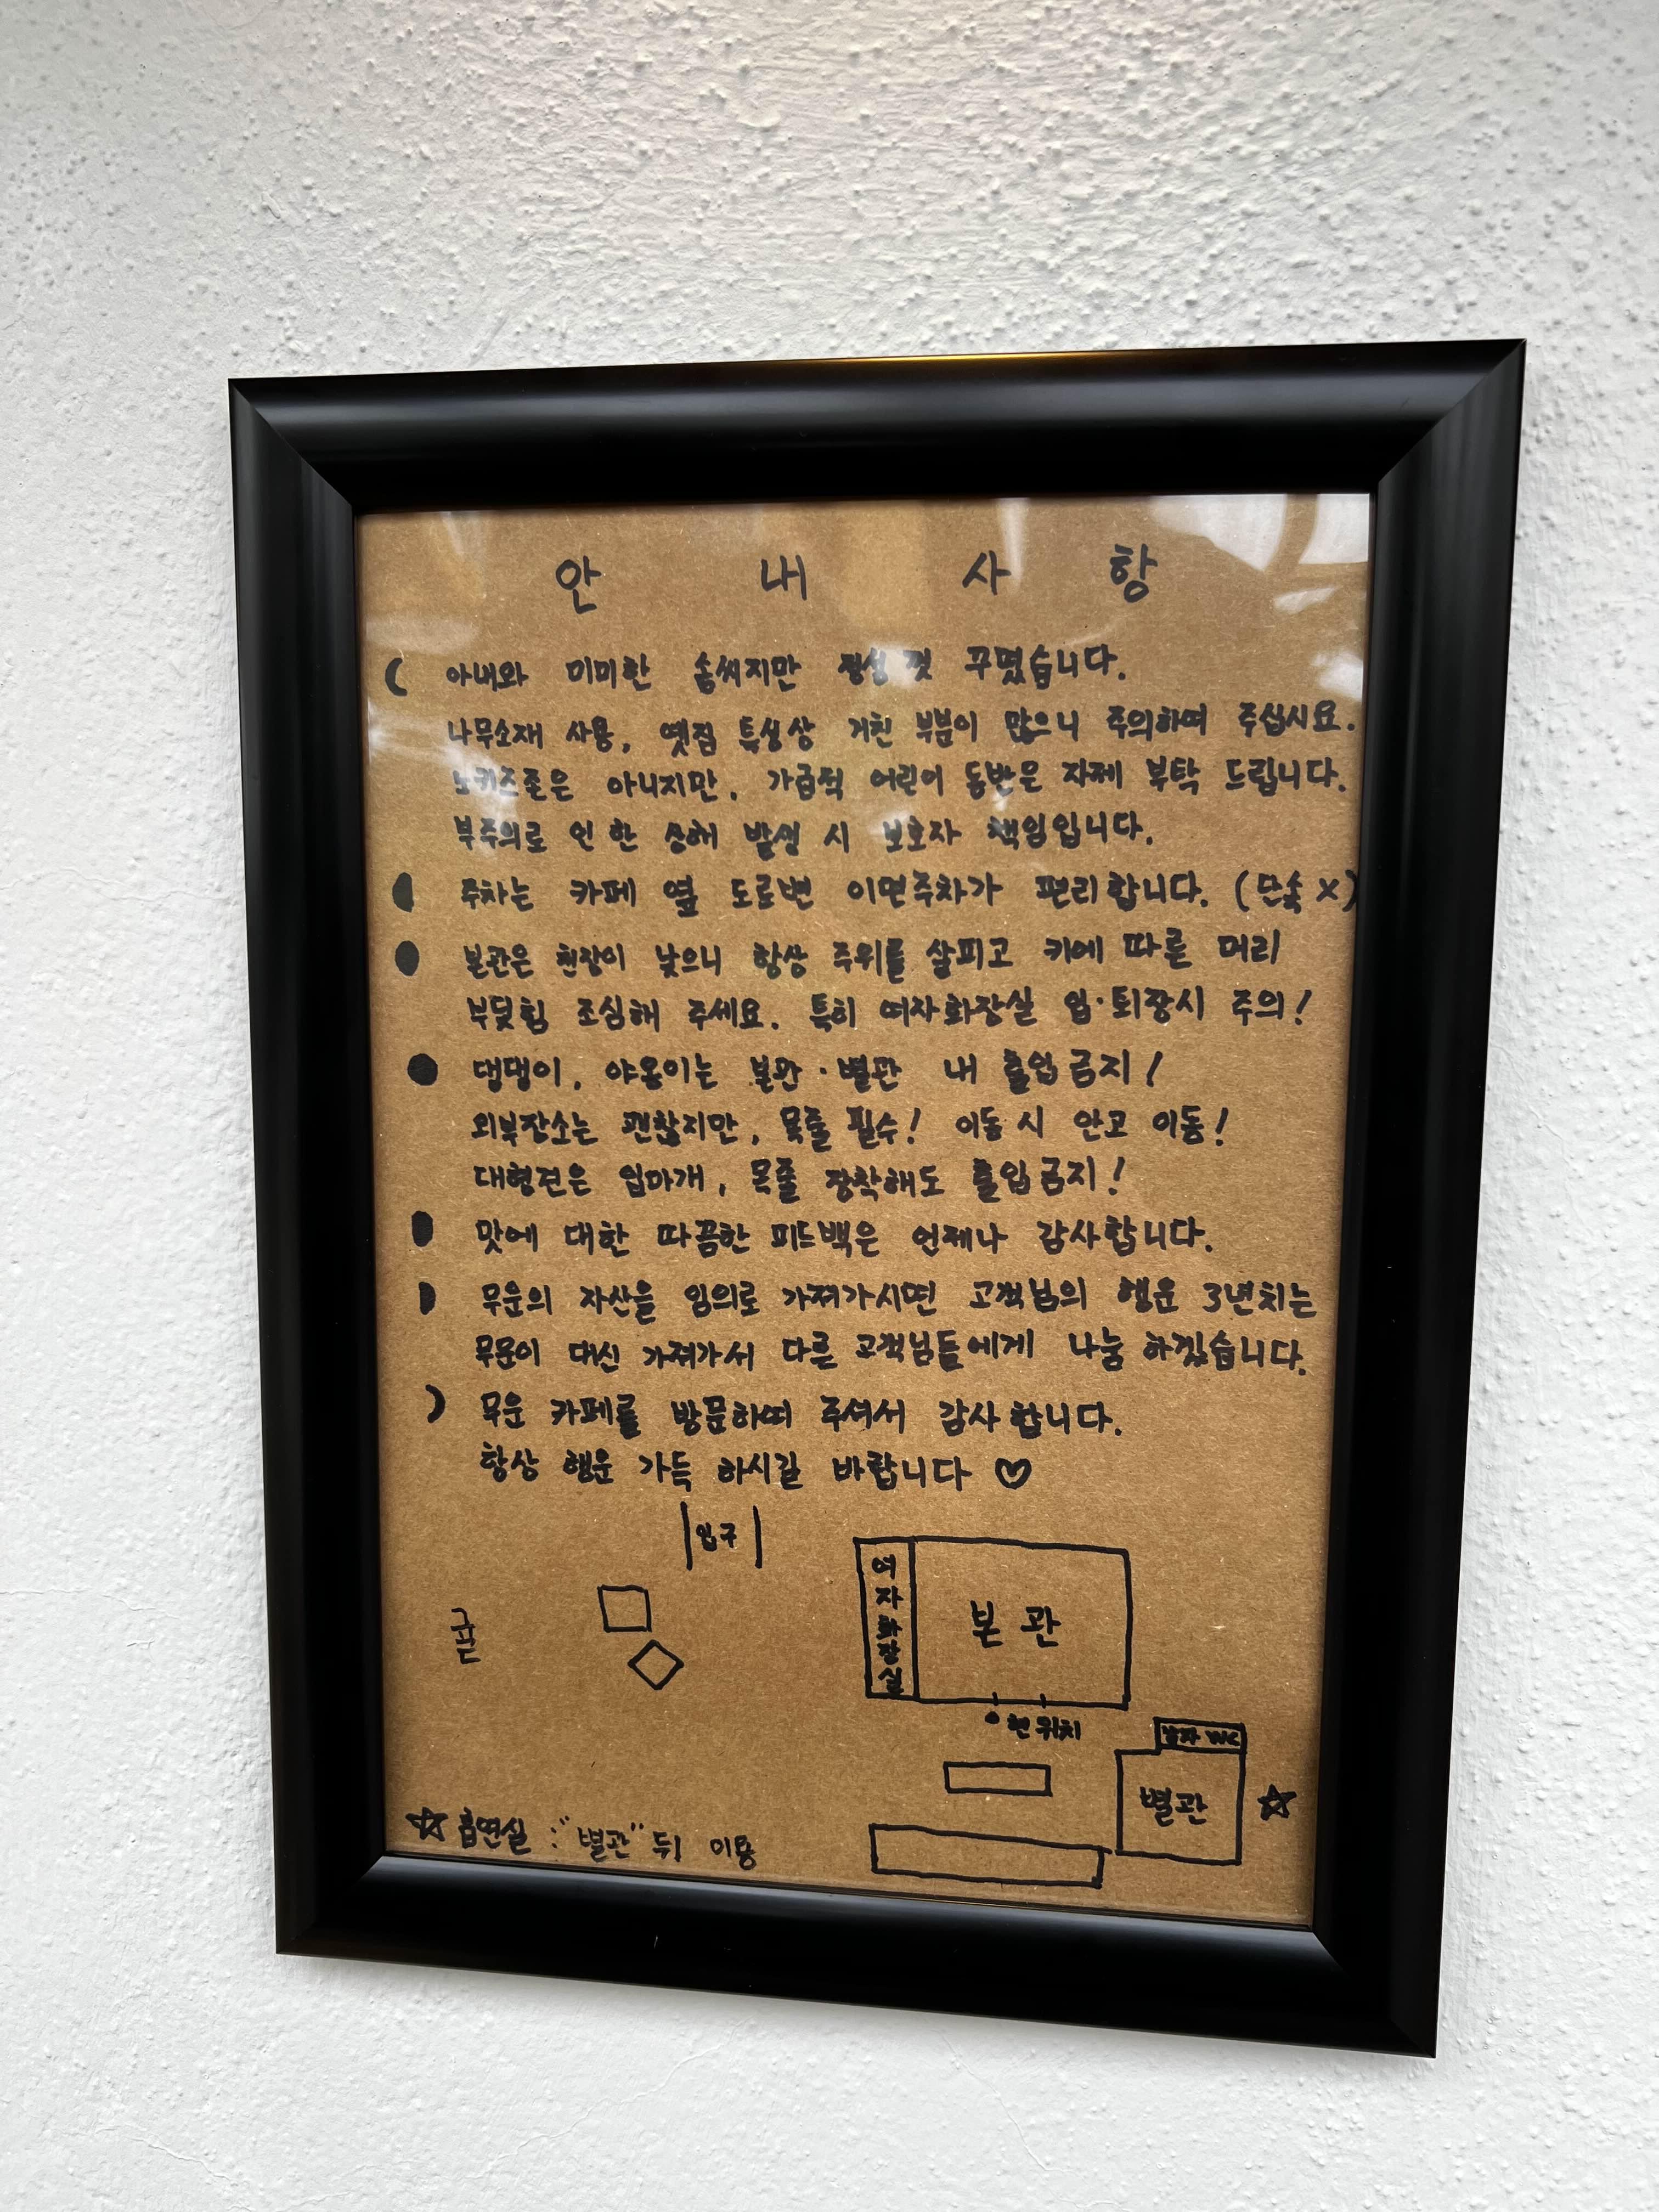 안 내 사 항
아내와 미미한 솜씨지만 정성껏 꾸몄습니다.
나무소재 사용, 옛집 특성상 거친 부분이 많으니 주의하여 주십시요.
노키즈존은 아니지만, 가급적 어린이 동반은 자제 부탁 드립니다.
부주의로 인 한 상해 발생 시 보호자 책임입니다.
주차는 카페 옆 도로변 이면주차가 편리합니다. (단속 X)
본관은 천장이 낮으니 항상 주위를 살피고 키에 따른 머리
부딪힘 조심해 주세요. 특히 여자화장실 입·퇴장시 주의!
댕댕이, 야옹이는 본관·별관 내 출입금지!
외부장소는 괜찮지만, 목줄 필수! 이동 시 안고 이동!
대형견은 입마개, 목줄 장착해도 출입금지!
맛에 대한 따끔한 피드백은 언제나 감사합니다.
무운의 자산을 임의로 가져가시면 고객님의 행운 3년치는
무운이 대신 가져가서 다른 고객님들에게 나눔 하겠습니다.
무운 카페를 방문하여 주셔서 감사합니다.
항상 행운 가득 하시길 바랍니다 ♡
입구
여자화장실
본관
귿
현위치
남자 WC
별관 ☆
☆ 흡연실 : "별관" 뒤 이용